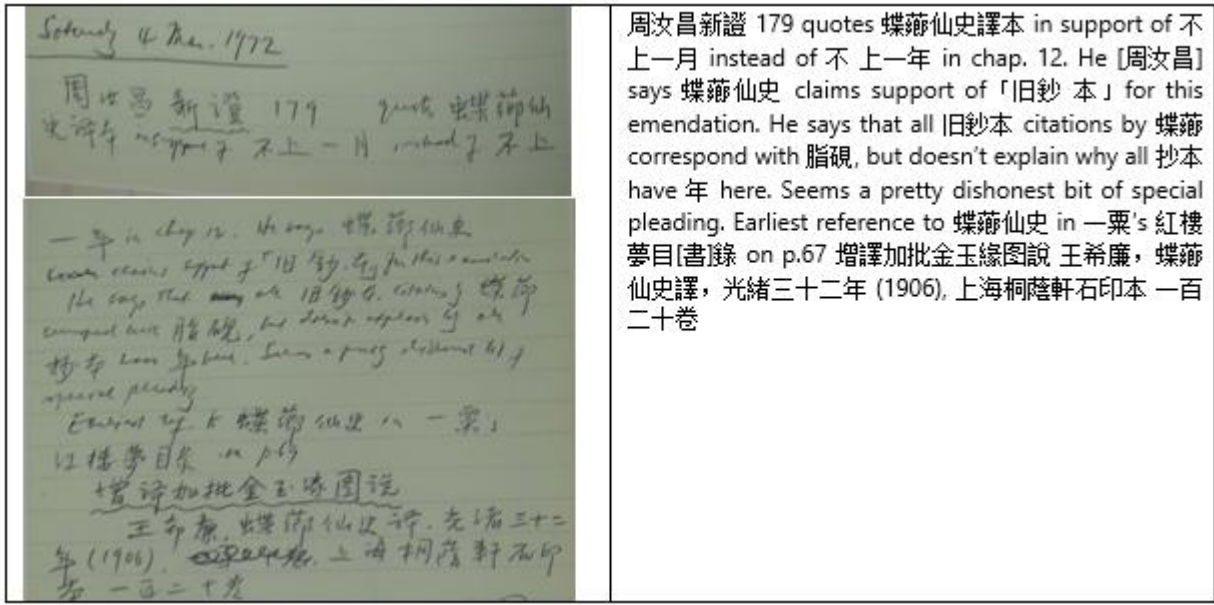 Saturday 4 Mar. 1972
周汝昌 新證 179 quotes 蝶薌仙
史译本 in support of 不上一月 instead of 不上
一年 in chap 12. He says 蝶薌仙史
claims support of「旧鈔本」for this emendation
He says that all 旧鈔本 citations by 蝶薌
correspond with 脂硯, but doesn't explain why all
抄本 have 年 here. Seems a pretty dishonest bit of
special pleading
Earliest ref. to 蝶薌仙史 in 一粟's
红楼夢目录 on p67
增译加批金玉缘图说
王希廉, 蝶薌仙史译. 光绪三十二
年 (1906). 上海桐蔭軒石印
本 一百二十卷
周汝昌新證 179 quotes 蝶薌仙史譯本 in support of 不
上一月 instead of 不 上一年 in chap. 12. He [周汝昌]
says 蝶薌仙史 claims support of「旧鈔 本」for this
emendation. He says that all 旧鈔本 citations by 蝶薌
correspond with 脂硯, but doesn't explain why all 抄本
have 年 here. Seems a pretty dishonest bit of special
pleading. Earliest reference to 蝶薌仙史 in 一粟's 紅樓
夢目[書]錄 on p.67 增譯加批金玉緣图說 王希廉，蝶薌
仙史譯，光緒三十二年 (1906), 上海桐蔭軒石印本 一百
二十卷